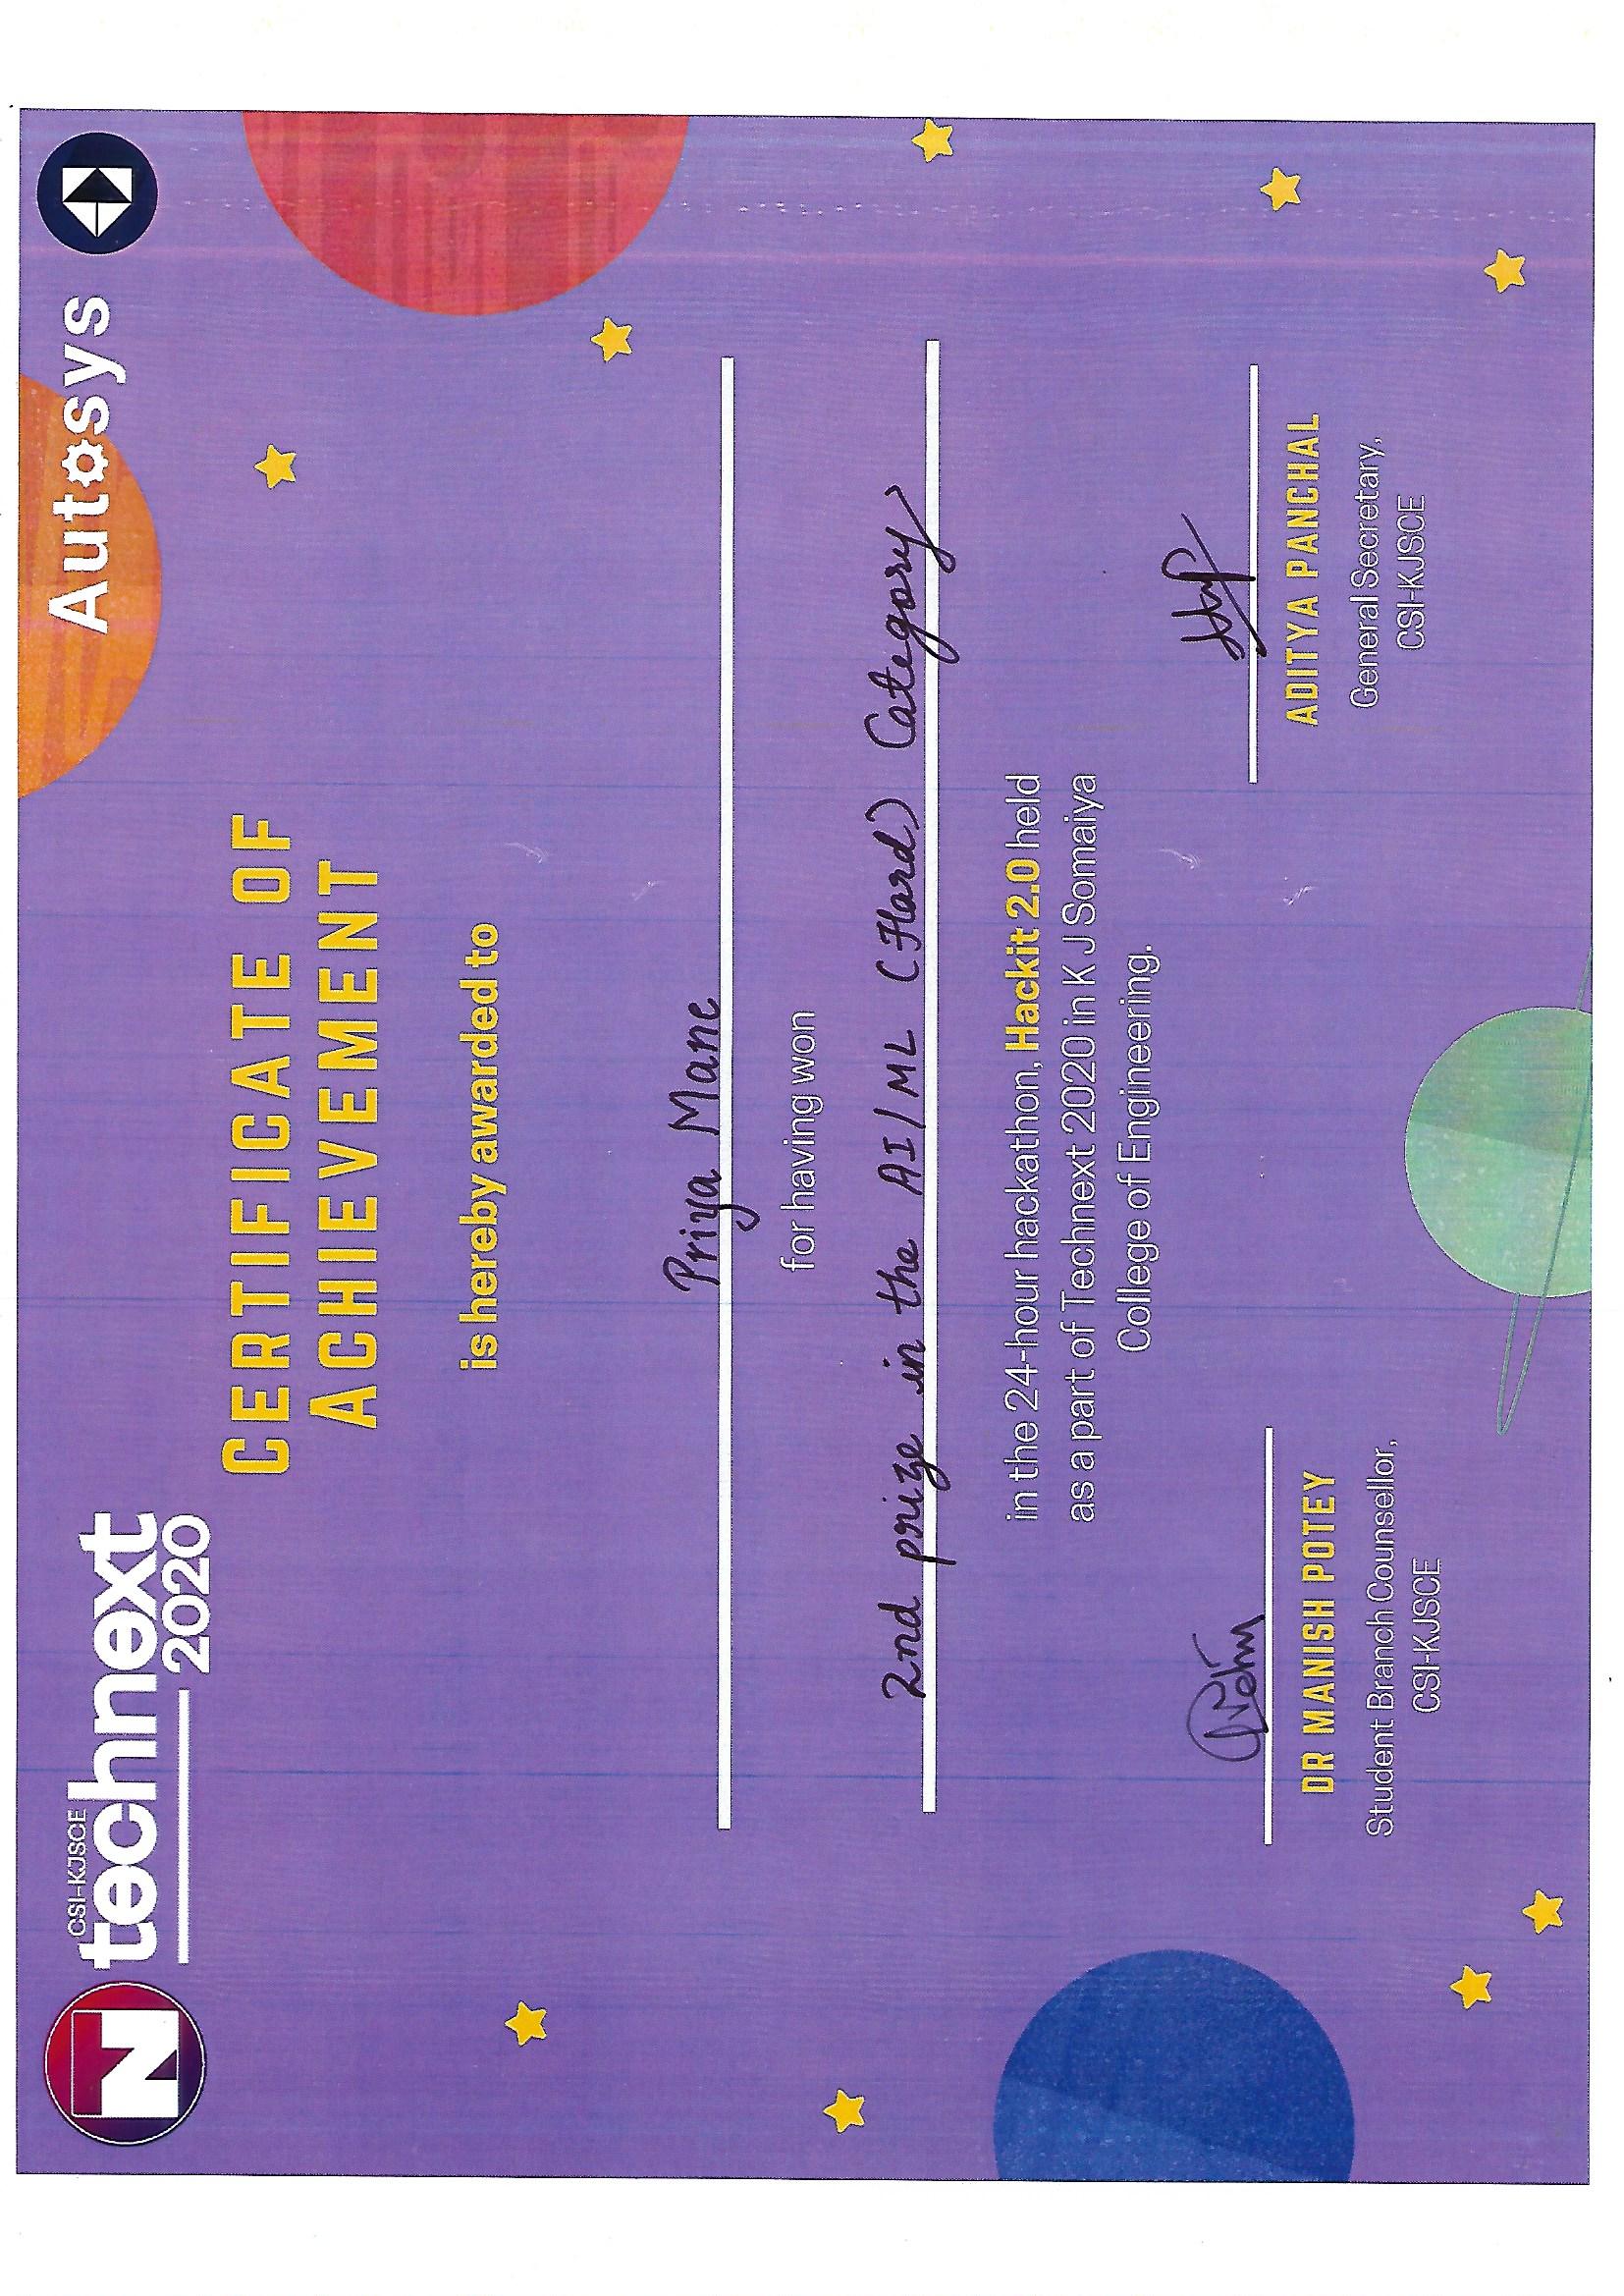 CSI-KJSCE
technext
2020
Autosys
CERTIFICATE OF
ACHIEVEMENT
is hereby awarded to
Priya Mane
for having won
2nd prize in the AI/ML (Hard) Category
in the 24-hour hackathon, Hackit 2.0 held
as a part of Technext 2020 in K J Somaiya
College of Engineering.
DR MANISH POTEY
Student Branch Counsellor,
CSI-KJSCE
ADITYA PANCHAL
General Secretary,
CSI-KJSCE